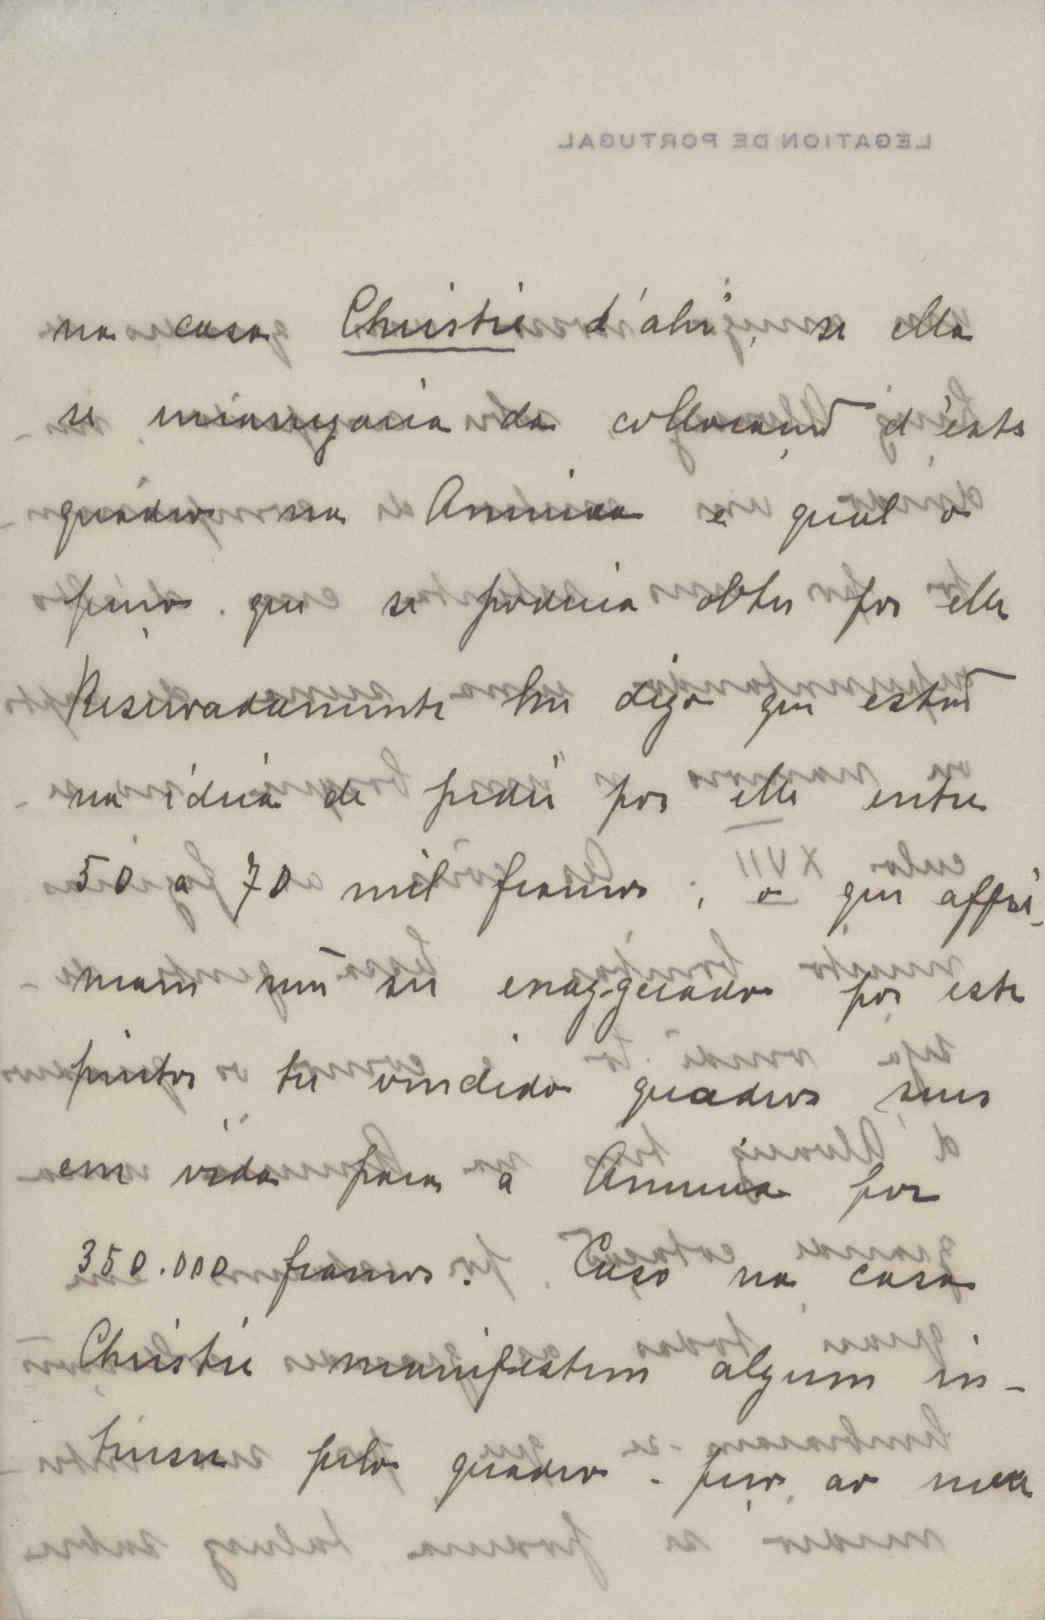 LEGATION DE PORTUGAL
na casa Christie d'ahi, se ella
se encarregaria da collocação d'este
quadro na America e qual o
preço que se poderia obter por elle
Reservadamente lhe digo que estão
na idéia de pedir por elle entre
50 a 70 mil francos; o que affir-
mam não ser exaggerado por este
pintor ter vendido quadros seus
em vida para a America por
350.000 francos. Caso na casa
Christie manifestem algum in-
teresse pelo quadro. peço ao meu